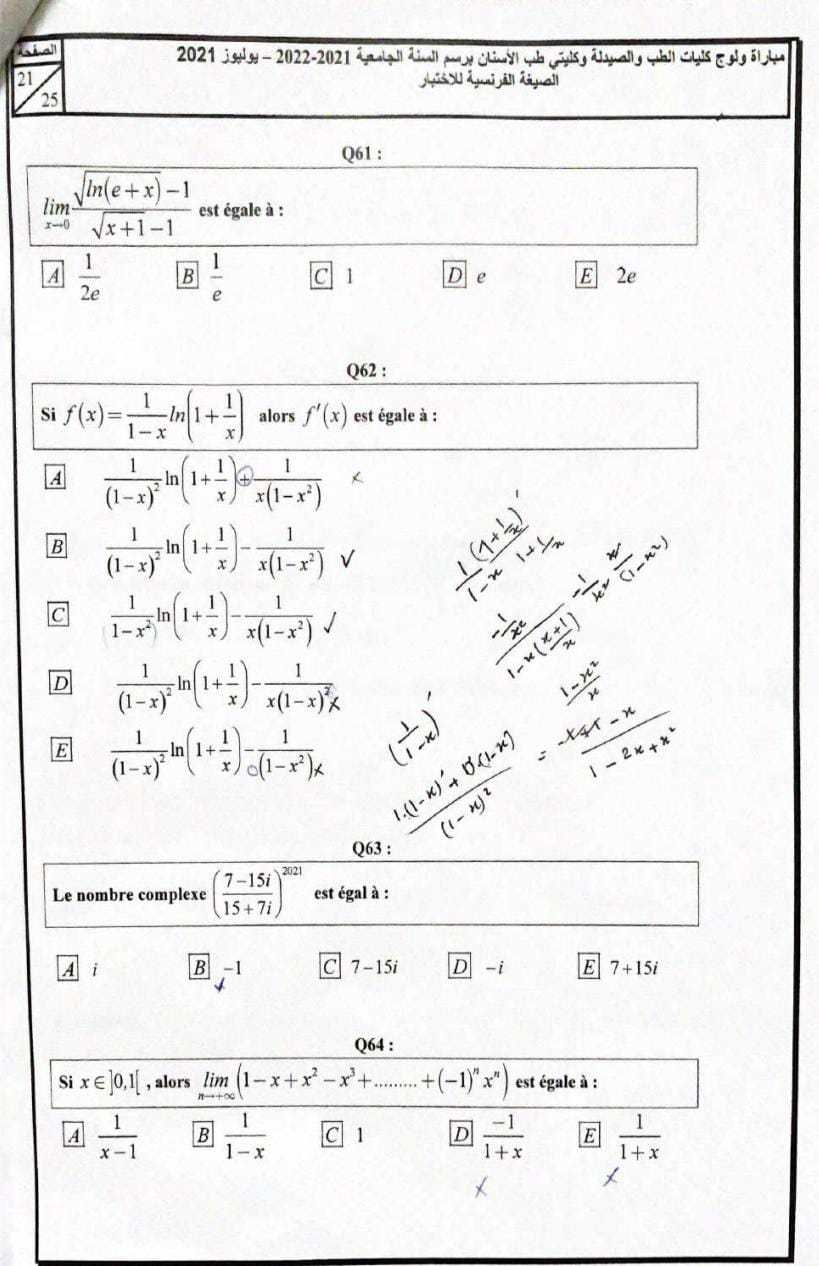 الصفحة
21
25
مباراة ولوج كليات الطب والصيدلة وكليتي طب الأسنان برسم السنة الجامعية 2021-2022 – يوليوز 2021
الصيغة الفرنسية للاختبار
Q61 :
lim x→0 (√ln(e+x) −1)/(√x+1 −1) est égale à :
A 1/2e B 1/e C 1 D e E 2e
Q62 :
Si f(x) = 1/(1−x) ln(1+1/x) alors f′(x) est égale à :
A 1/(1−x)² ln(1+1/x) + 1/x(1−x²) ×
B 1/(1−x)² ln(1+1/x) − 1/x(1−x²) √
C 1/(1−x²) ln(1+1/x) − 1/x(1−x²) √
D 1/(1−x)² ln(1+1/x) − 1/x(1−x)² ×
E 1/(1−x)² ln(1+1/x) − 1/(1−x²) ×
(1/1−x)′
1.(1−x)′+0′(1−x)/(1−x)²
1−x²/x
Q63 :
Le nombre complexe ((7−15i)/(15+7i))²⁰²¹ est égal à :
A i B −1 C 7−15i D −i E 7+15i
Q64 :
Si x∈]0,1[ , alors lim n→+∞ (1−x+x²−x³+.........+(−1)ⁿxⁿ) est égale à :
A 1/(x−1) B 1/(1−x) C 1 D −1/(1+x) E 1/(1+x)
× ×